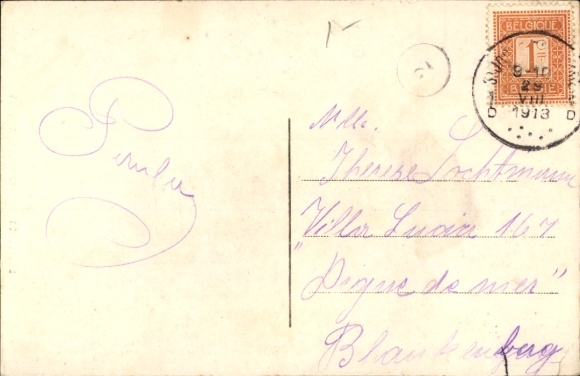 BELGIQUE
1
BELGIË
9-10
29
VIII
1913
D D
Mlle.
Therese Lochtmann
Villa Luxor 167
"Digue de mer"
Blankenberg